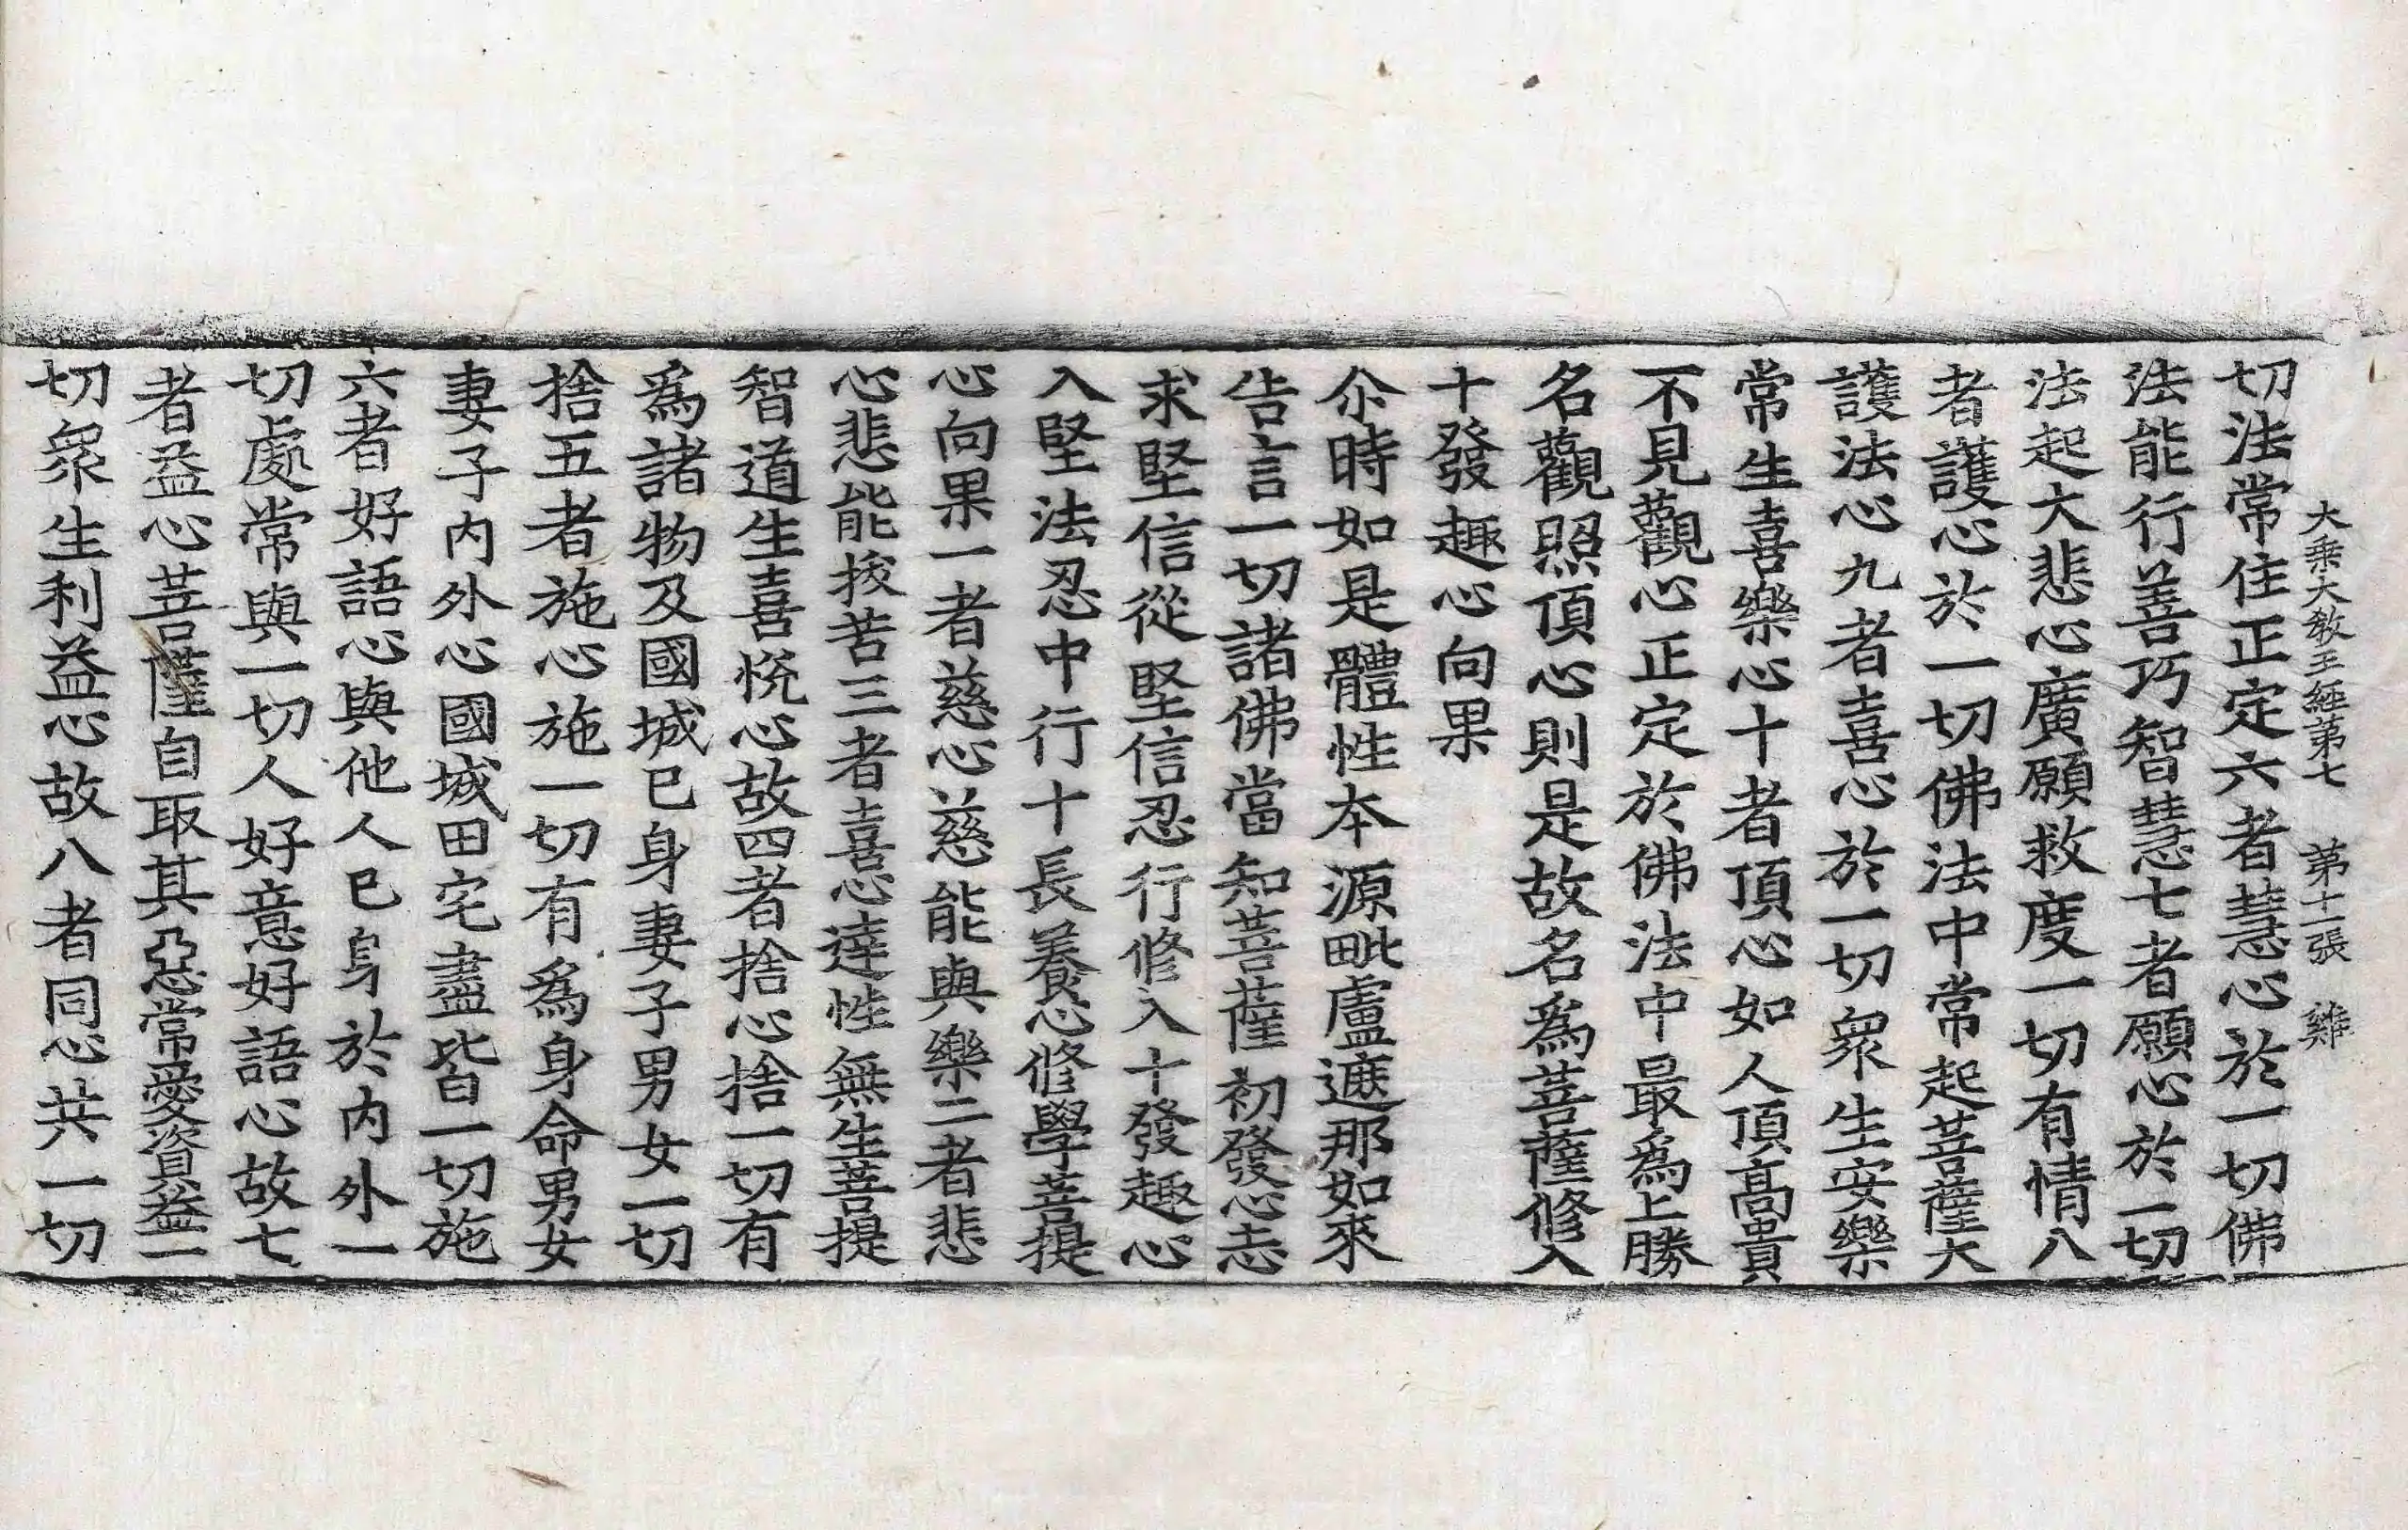 大乘大教王經第七　第十一張　雞
切法常住正定六者慧心於一切佛
法能行善巧智慧七者願心於一切
法起大悲心廣願救度一切有情八
者護心於一切佛法中常起菩薩大
護法心九者喜心於一切衆生安樂
常生喜樂心十者頂心如人頂高貴
不見觀心正定於佛法中最爲上勝
名觀照頂心則是故名爲菩薩修入
十發趣心向果
尒時如是體性本源毗盧遮那如來
告言一切諸佛當知菩薩初發心志
求堅信從堅信忍行修入十發趣心
入堅法忍中行十長養心修學菩提
心向果一者慈心慈能與樂二者悲
心悲能拔苦三者喜心達性無生菩提
智道生喜悅心故四者捨心捨一切有
爲諸物及國城已身妻子男女一切
捨五者施心施一切有爲身命男女
妻子内外心國城田宅盡皆一切施
六者好語心與他人已身於内外一
切處常與一切人好意好語心故七
者益心菩薩自取其惡常愛資益一
切衆生利益心故八者同心共一切